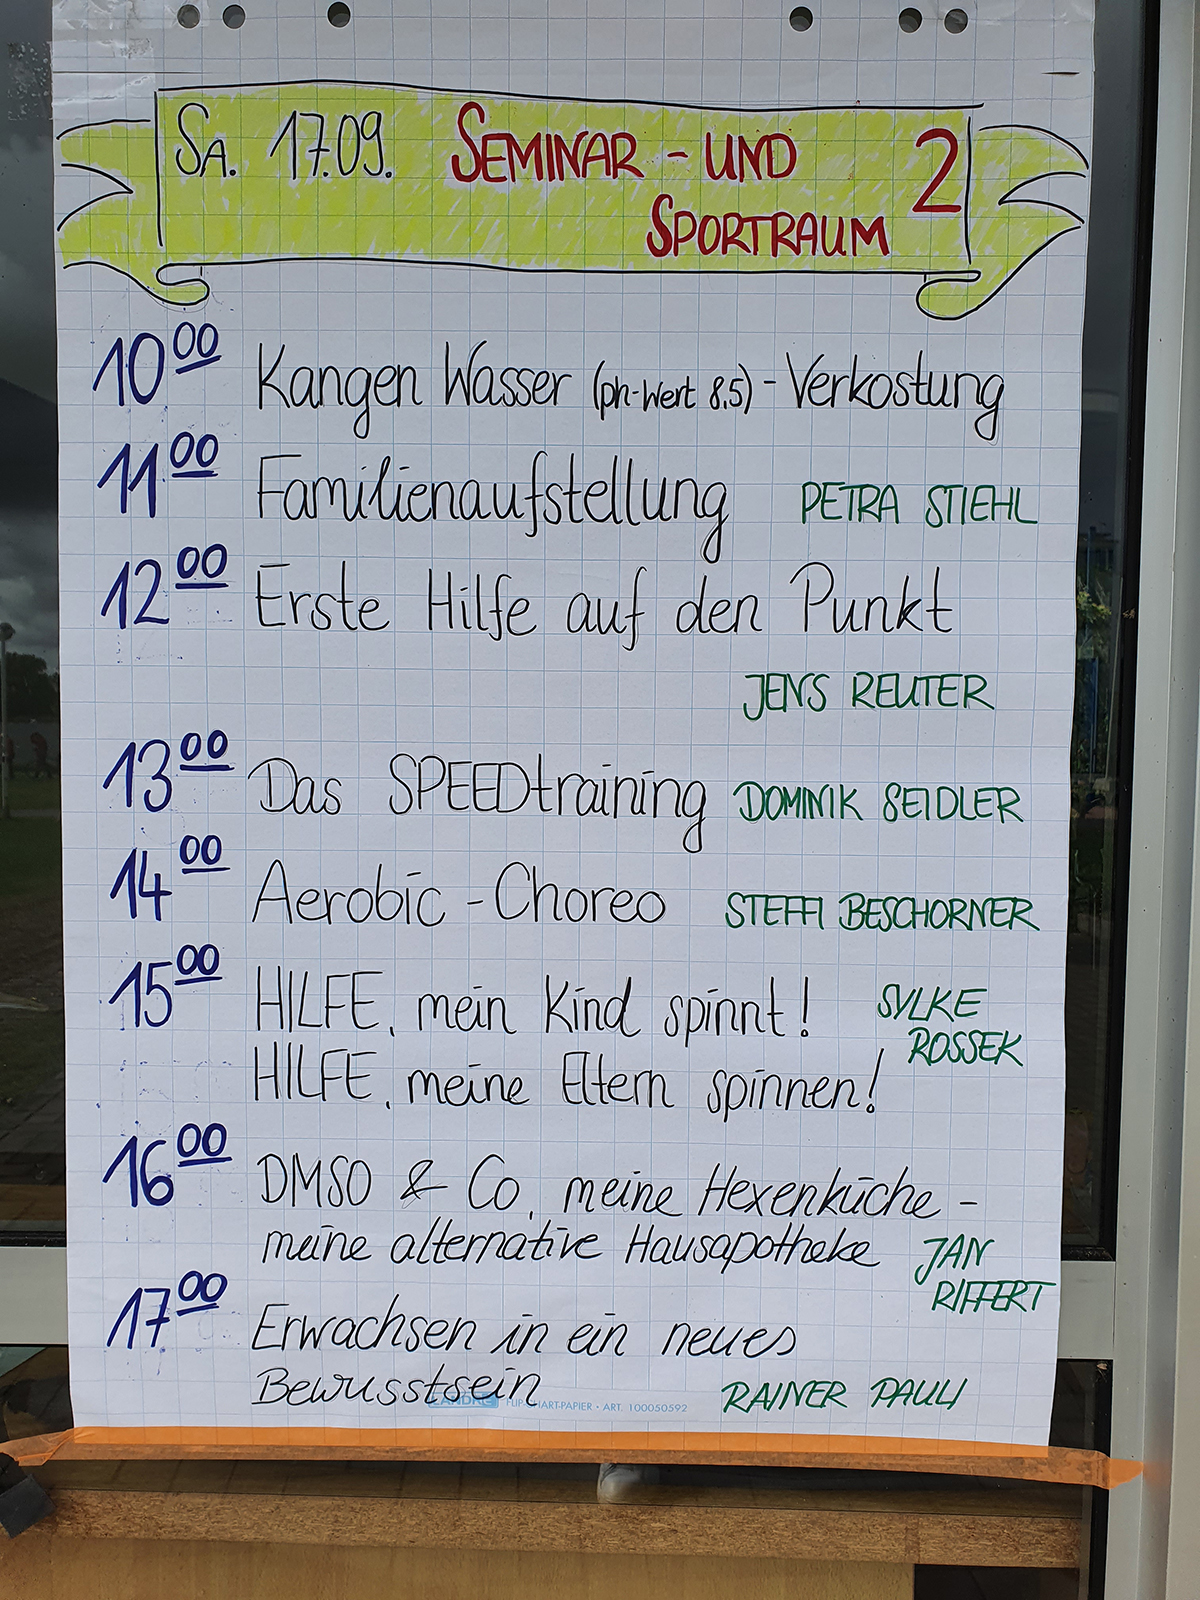 SA. 17.09. SEMINAR - UND
SPORTRAUM 2
10 00 Kangen Wasser (ph-Wert 8,5) - Verkostung
11 00 Familienaufstellung PETRA STIEHL
12 00 Erste Hilfe auf den Punkt
JENS REUTER
13 00 Das SPEEDtraining DOMINIK SEIDLER
14 00 Aerobic - Choreo STEFFI BESCHORNER
15 00 HILFE, mein Kind spinnt! SYLKE
ROSSEK
HILFE, meine Eltern spinnen!
16 00 DMSO & Co, meine Hexenküche -
meine alternative Hausapotheke JAN
RIFFERT
17 00 Erwachsen in ein neues
Bewusstsein RAINER PAULI
LANDRÉ FLIPCHART-PAPIER • ART. 100050592